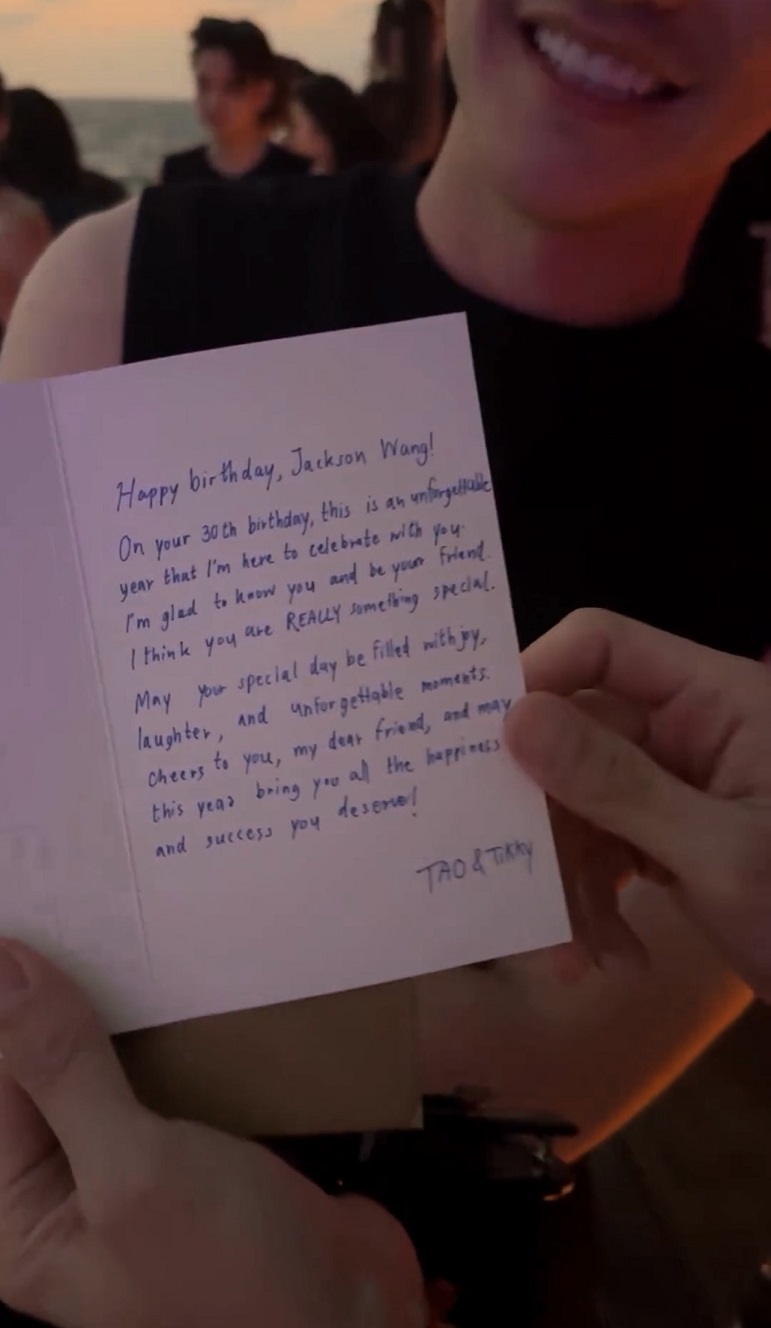 Happy birthday, Jackson Wang!
On your 30th birthday, this is an unforgettable
year that I'm here to celebrate with you.
I'm glad to know you and be your friend.
I think you are REALLY something special.
May your special day be filled with joy,
laughter, and unforgettable moments.
cheers to you, my dear friend, and may
this year bring you all the happiness
and success you deserve!
TAO & TiKKy